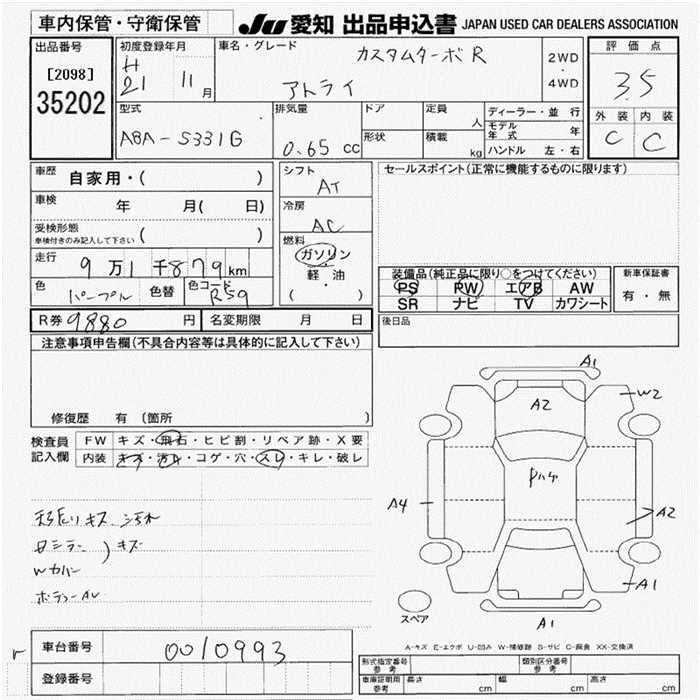 車内保管・守衛保管
JU 愛知 出品申込書 JAPAN USED CAR DEALERS ASSOCIATION
出品番号
[2098]
35202
初度登録年月
H
21 11月
車名・グレード
カスタムターボR
アトライ
2WD
・
4WD
評価点
3.5
外装 内装
C C
型式
ABA-S331G
排気量
0.65 cc
ドア
形状
定員
人
積載
kg
ディーラー・並行
モデル年式 年
ハンドル 左・右
車歴 自家用・( )
車検 年 月( 日)
受検形態
車検付きのみ記入して下さい ( )
走行 9万1千879km
色 パープル 色替 色コード R59
シフト
AT
冷房
AC
燃料
ガソリン
・
軽・油
( )
セールスポイント(正常に機能するものに限ります)
装備品(純正品に限り○をつけてください)
PS PW エアB AW
SR ナビ TV カワシート
新車保証書
有・無
R券 9880 円 名変期限 月 日
後日品
注意事項申告欄(不具合内容等は具体的に記入して下さい)
修復歴 有 〔箇所 〕
検査員
記入欄
FW キズ・飛石・ヒビ割・リペア跡・X要
内装 キズ・汚レ・コゲ・穴・スレ・キレ・破レ
キズ
キズ
Wカバー
A1
W2
A2
A4
A2
A1
A1
スペア
A-キズ E-エクボ U-凹み W-補修跡 S-サビ C-腐食 XX-交換済
車台番号 0010993
登録番号
型式指定番号
参考
類別区分番号
参考
車庫証明用
参考
長さ cm 幅 cm 高さ cm